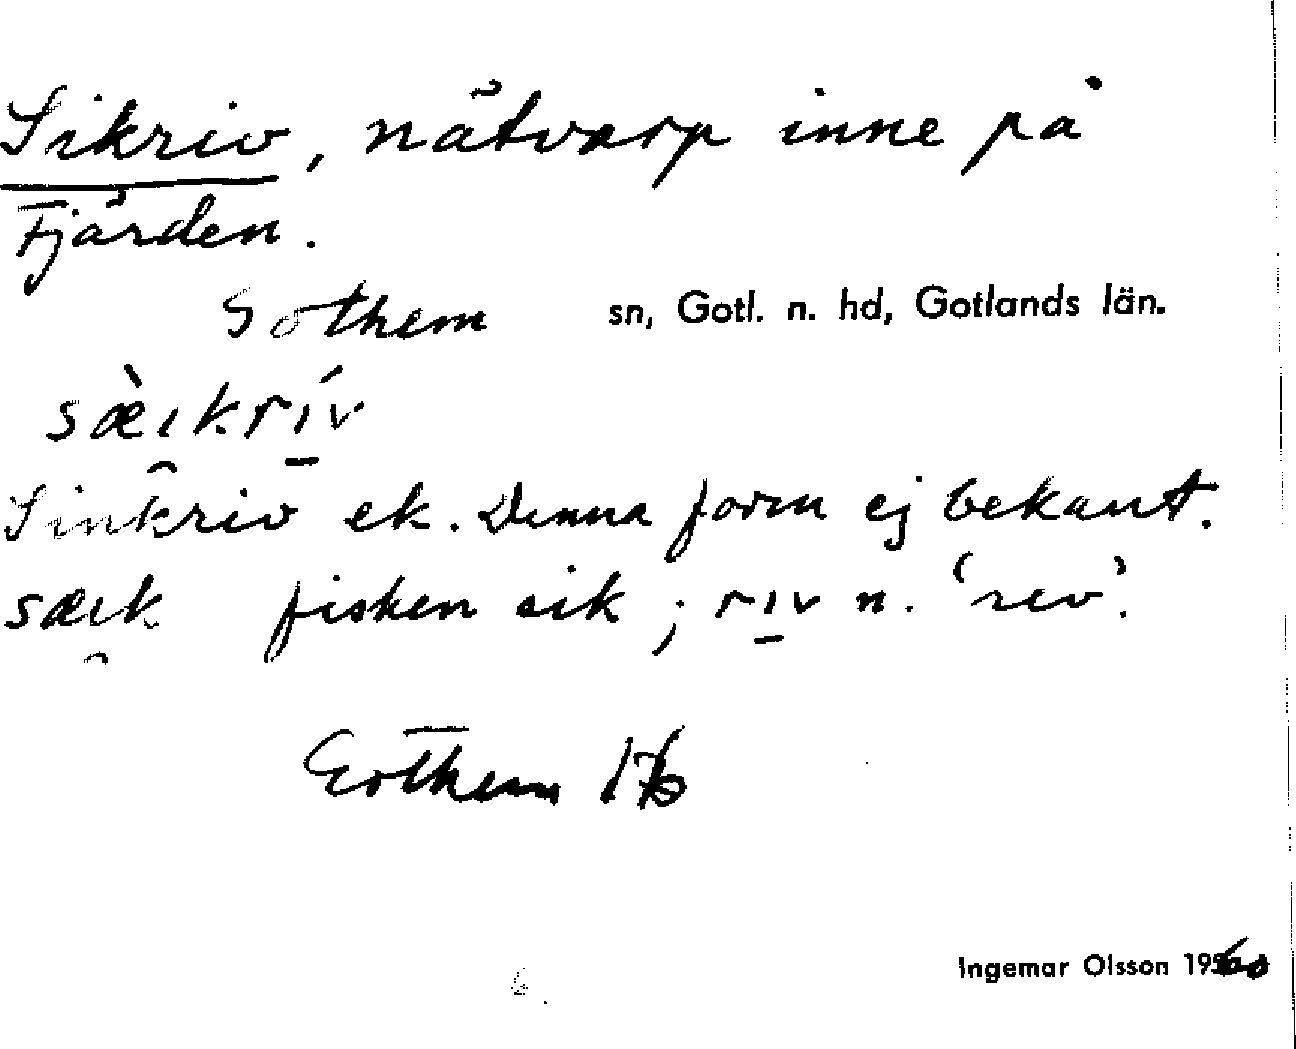 Sikriv, nätvarp inne på
Fjärden.
Gothem sn, Gotl. n. hd, Gotlands län.
sæ̀ɩkrív
Sinkriv ek. Denna form ej bekant.
sæɩk fisken sik; rɩv n. 'rev'.
Gothem 176
Ingemar Olsson 1960